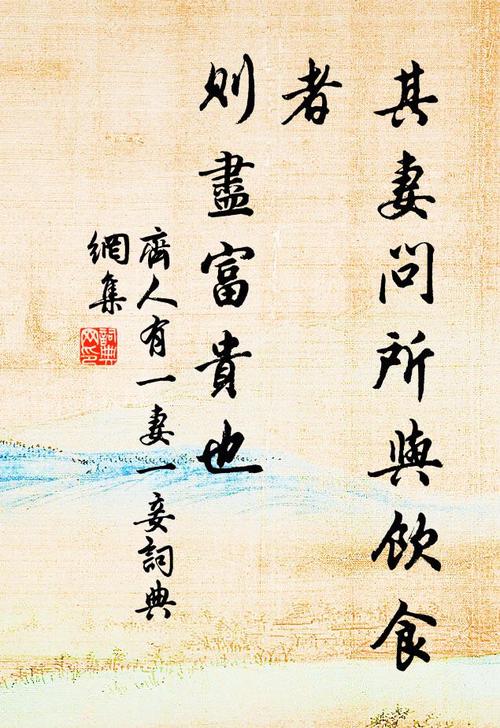 其妻問所與飲食
者
则盡富貴也
齊人有一妻一妾詞典
網集
詞典
网印